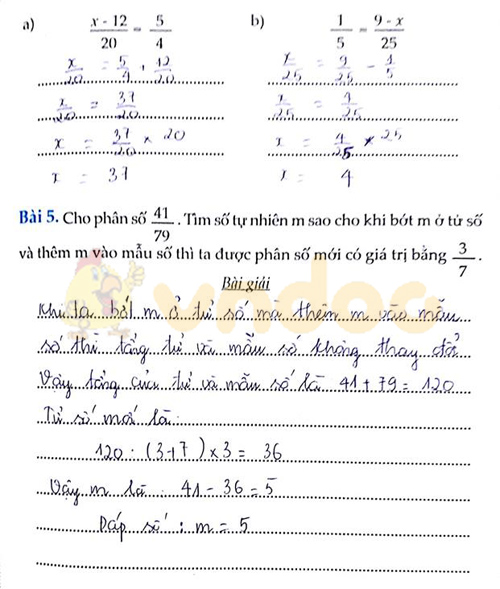 a) x - 12 / 20 = 5 / 4 b) 1 / 5 = 9 - x / 25
x / 20 = 5 / 4 + 12 / 20 x / 25 = 9 / 25 - 1 / 5
x / 20 = 37 / 20 x / 25 = 4 / 25
x = 37 / 20 × 20 x = 4 / 25 × 25
x = 37 x = 4
Bài 5. Cho phân số 41 / 79 . Tìm số tự nhiên m sao cho khi bớt m ở tử số
và thêm m vào mẫu số thì ta được phân số mới có giá trị bằng 3 / 7 .
Bài giải
vndoc
Khi ta bớt m ở tử số mà thêm m vào mẫu
số thì tổng tử và mẫu số không thay đổi
Vậy tổng của tử và mẫu số là 41 + 79 = 120
Tử số mới là:
120 : (3+7) × 3 = 36
Vậy m là : 41 - 36 = 5
Đáp số : m = 5